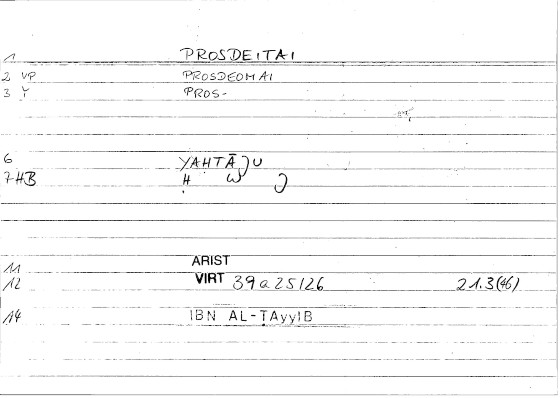 1 PROSDEITAI
2 VP PROSDEOMAI
3 Y PROS-
6 YAHTĀJU
7 HB Ḥ W J
11 ARIST
12 VIRT 39a25/26 21.3(46)
14 IBN AL-ṬAyyIB